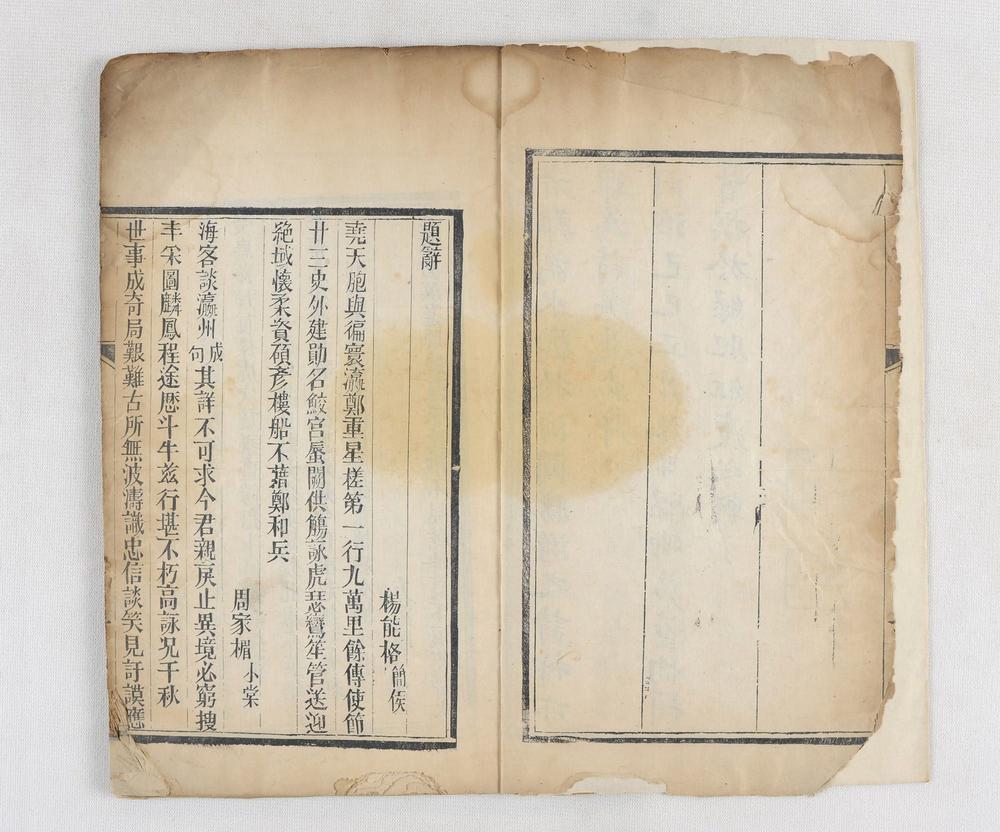 題辭
楊能格簡侯
堯天胞與徧寰瀛鄭重星槎第一行九萬里餘傳使節
廿三史外建勛名鮫宮蜃闕供觴詠虎瑟鸞笙管送迎
絶域懷柔資碩彥樓船不藉鄭和兵
周家楣小棠
海客談瀛州成句其詳不可求今君親戾止異境必窮搜
丰采圖麟鳳程途厯斗牛茲行堪不朽高詠況千秋
世事成奇局艱難古所無波濤識忠信談笑見訏謨應